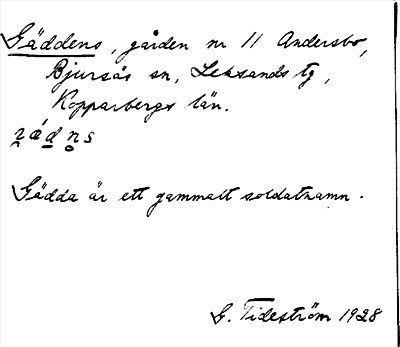 Gäddens, gården nr 11 Andersbo,
Bjursås sn, Leksands tg,
Kopparbergs län.
Gädda är ett gammalt soldatnamn.
G. Tideström 1928